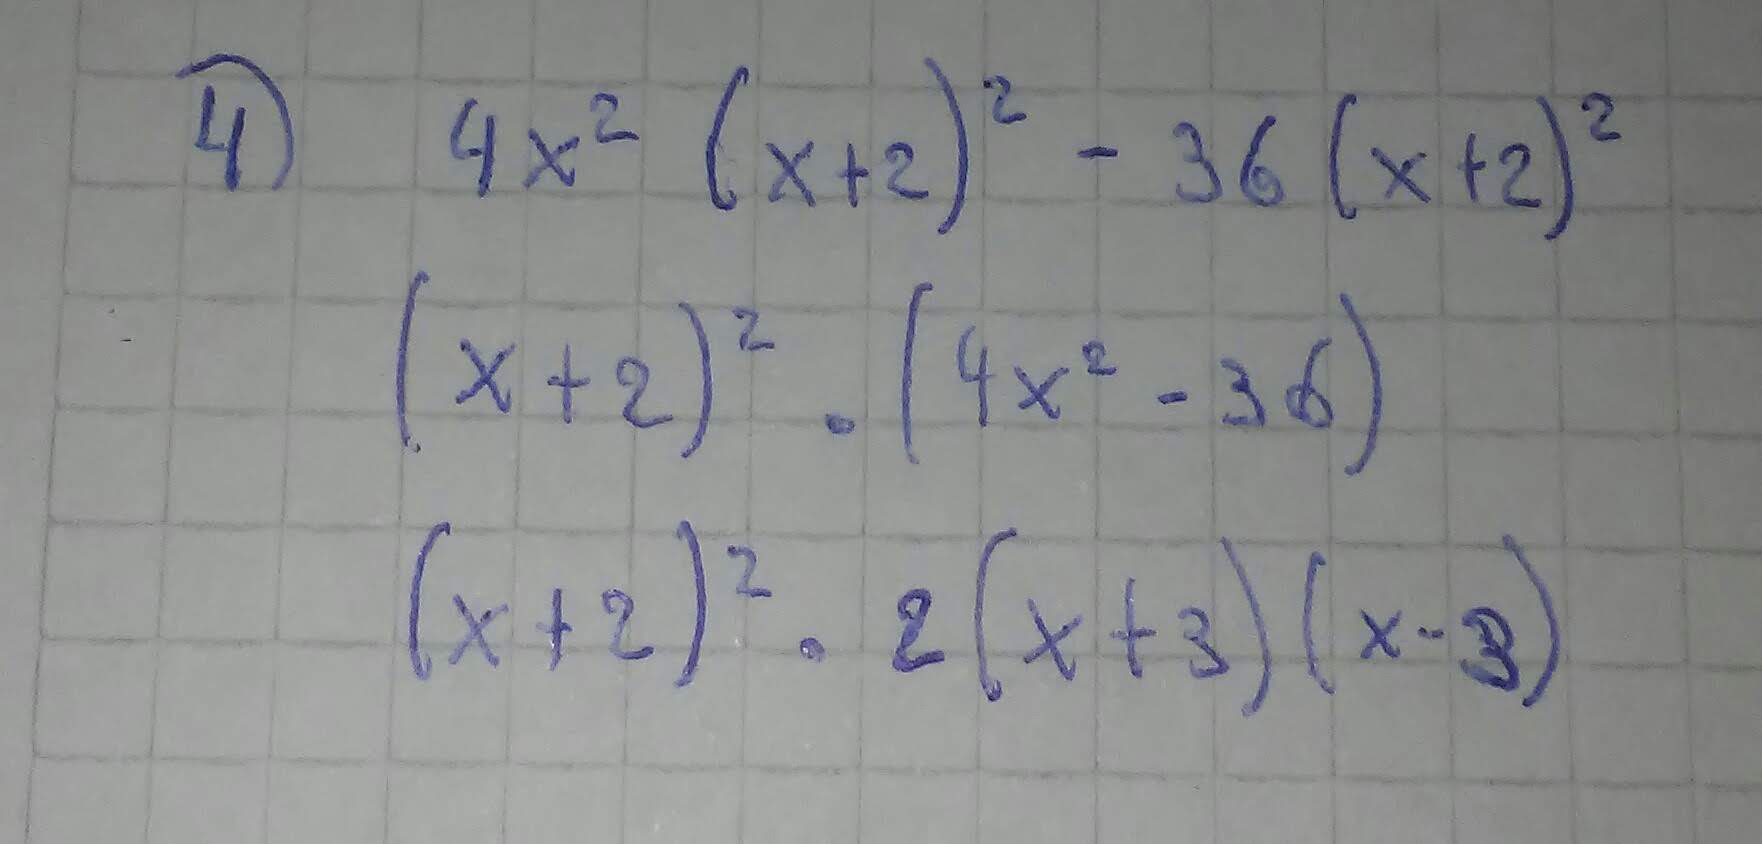 4) 4x² (x+2)² - 36 (x+2)²
(x+2)² . (4x² - 36)
(x+2)² . 2(x+3)(x-3)